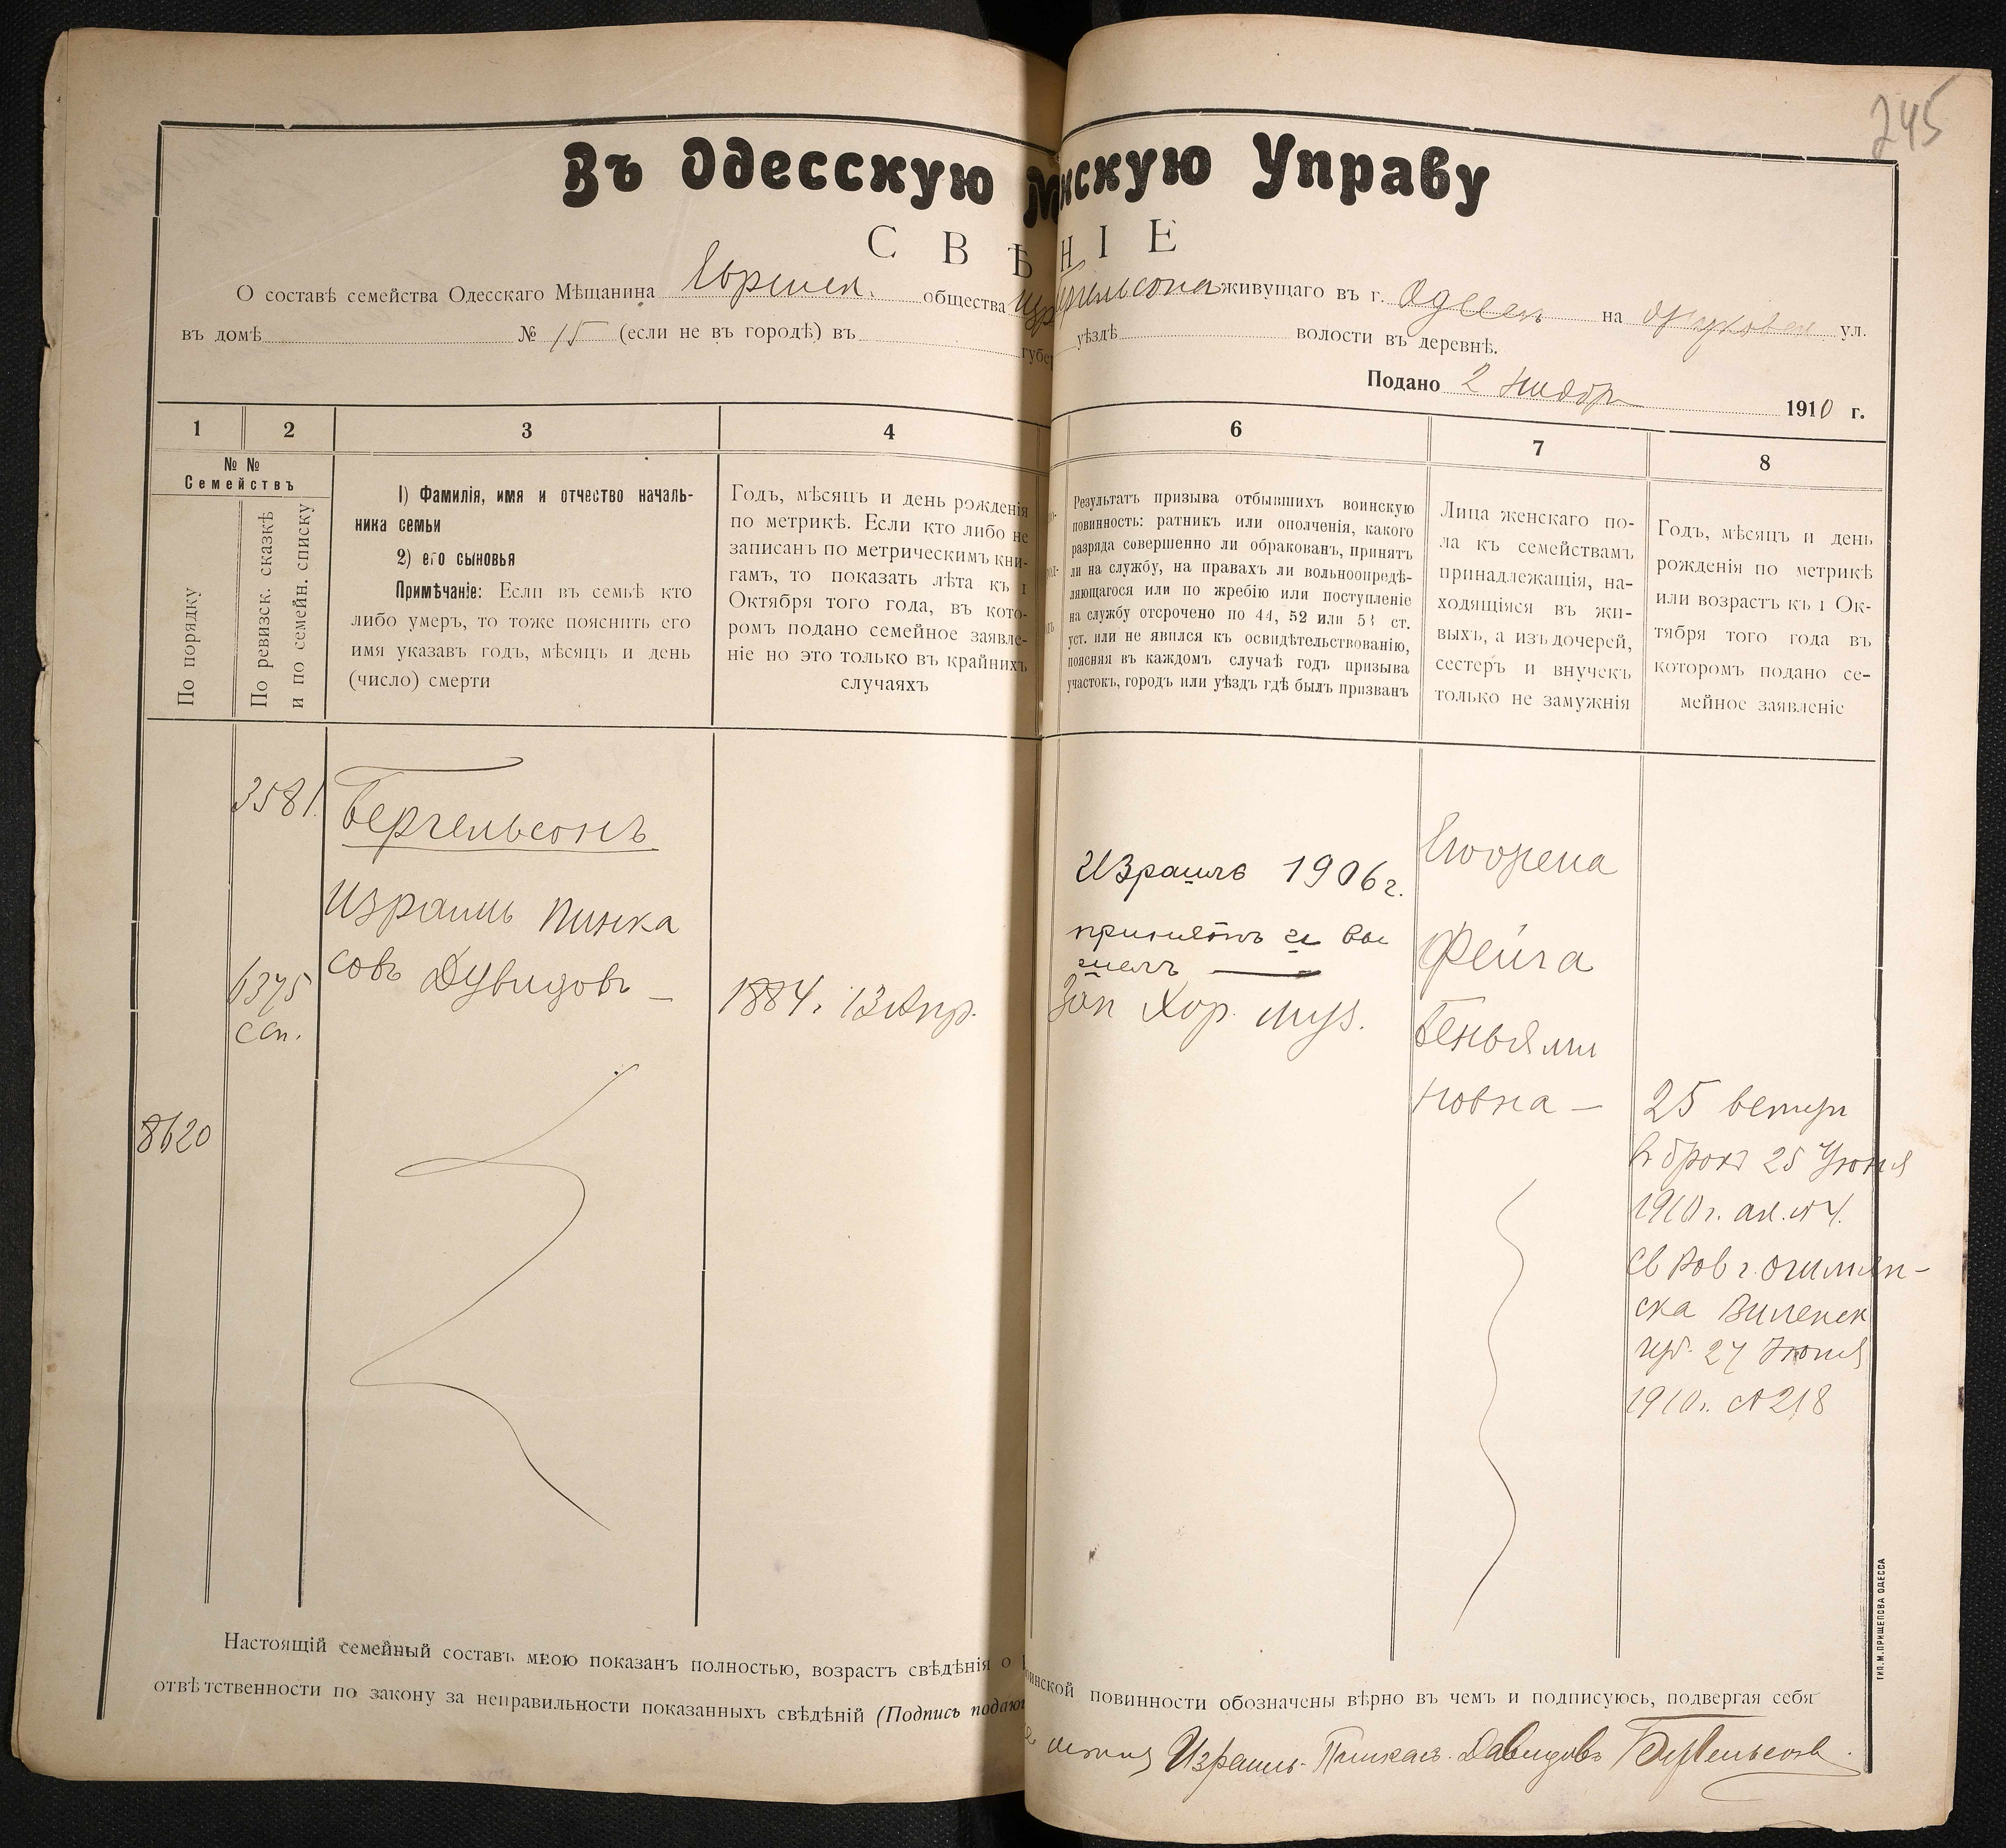 245
Въ Одесскую М нскую Управу
С В Ѣ Н І Е
О составѣ семейства Одесскаго Мѣщанина общества живущаго въ г. Одессѣ на ул.
въ домѣ № 15 (если не въ городѣ) въ губе уѣздѣ волости въ деревнѣ.
Подано 2 1910 г.
1 2 3 4 6 7 8
№ №
Семействъ
По порядку
По ревизск. сказкѣ
и по семейн. списку
1) Фамилія, имя и отчество началь-
ника семьи
2) его сыновья
Примѣчаніе: Если въ семьѣ кто
либо умеръ, то тоже пояснить его
имя указавъ годъ, мѣсяцъ и день
(число) смерти
Годъ, мѣсяцъ и день рожденія
по метрикѣ. Если кто либо не
записанъ по метрическимъ кни-
гамъ, то показать лѣта къ 1
Октября того года, въ кото-
ромъ подано семейное заявле-
ніе но это только въ крайнихъ
случаяхъ
Результатъ призыва отбывшихъ воинскую
повинность: ратникъ или ополченія, какого
разряда совершенно ли обракованъ, принятъ
ли на службу, на правахъ ли вольноопредѣ-
ляющагося или по жребію или поступленіе
на службу отсрочено по 44, 52 или 53 ст.
уст. или не явился къ освидѣтельствованію,
поясняя въ каждомъ случаѣ годъ призыва
участокъ, городъ или уѣздъ гдѣ былъ призванъ
Лица женскаго по-
ла къ семействамъ
принадлежащія, на-
ходящіяся въ жи-
выхъ, а изъ дочерей,
сестеръ и внучекъ
только не замужнія
Годъ, мѣсяцъ и день
рожденія по метрикѣ
или возрастъ къ 1 Ок-
тября того года въ
которомъ подано се-
мейное заявленіе
3581.
Бергельсонъ
Израиль Пинка
совъ Дувидовъ —
6375
8620
1884. 13 Апр.
Израиль 1906 г.
принятъ и вы
шелъ —
Зап Хор. муз.
Фейга
Беньями
новна —
25
въ бракъ 25 Іюня
1910 г.
Виленск
губ. 27 Іюня
1910 г. № 218
Настоящій семейный составъ мною показанъ полностью, возрастъ свѣдѣнія о инской повинности обозначены вѣрно въ чемъ и подписуюсь, подвергая себя
отвѣтственности по закону за неправильности показанныхъ свѣдѣній (Подпись подаю
Израиль-Пинкасъ Давидовъ Бергельсонъ.
ТИП. М. ПРИЩЕПОВА ОДЕССА